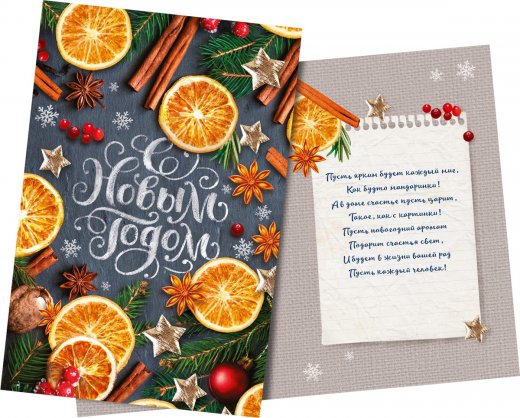 С
Новым
Годом
Пусть ярким будет каждый миг,
Как будто мандаринка!
А в доме счастье пусть царит,
Такое, как с картинки!
Пусть новогодний аромат
Подарит счастья свет,
И будет в жизни вашей рад
Пусть каждый человек!